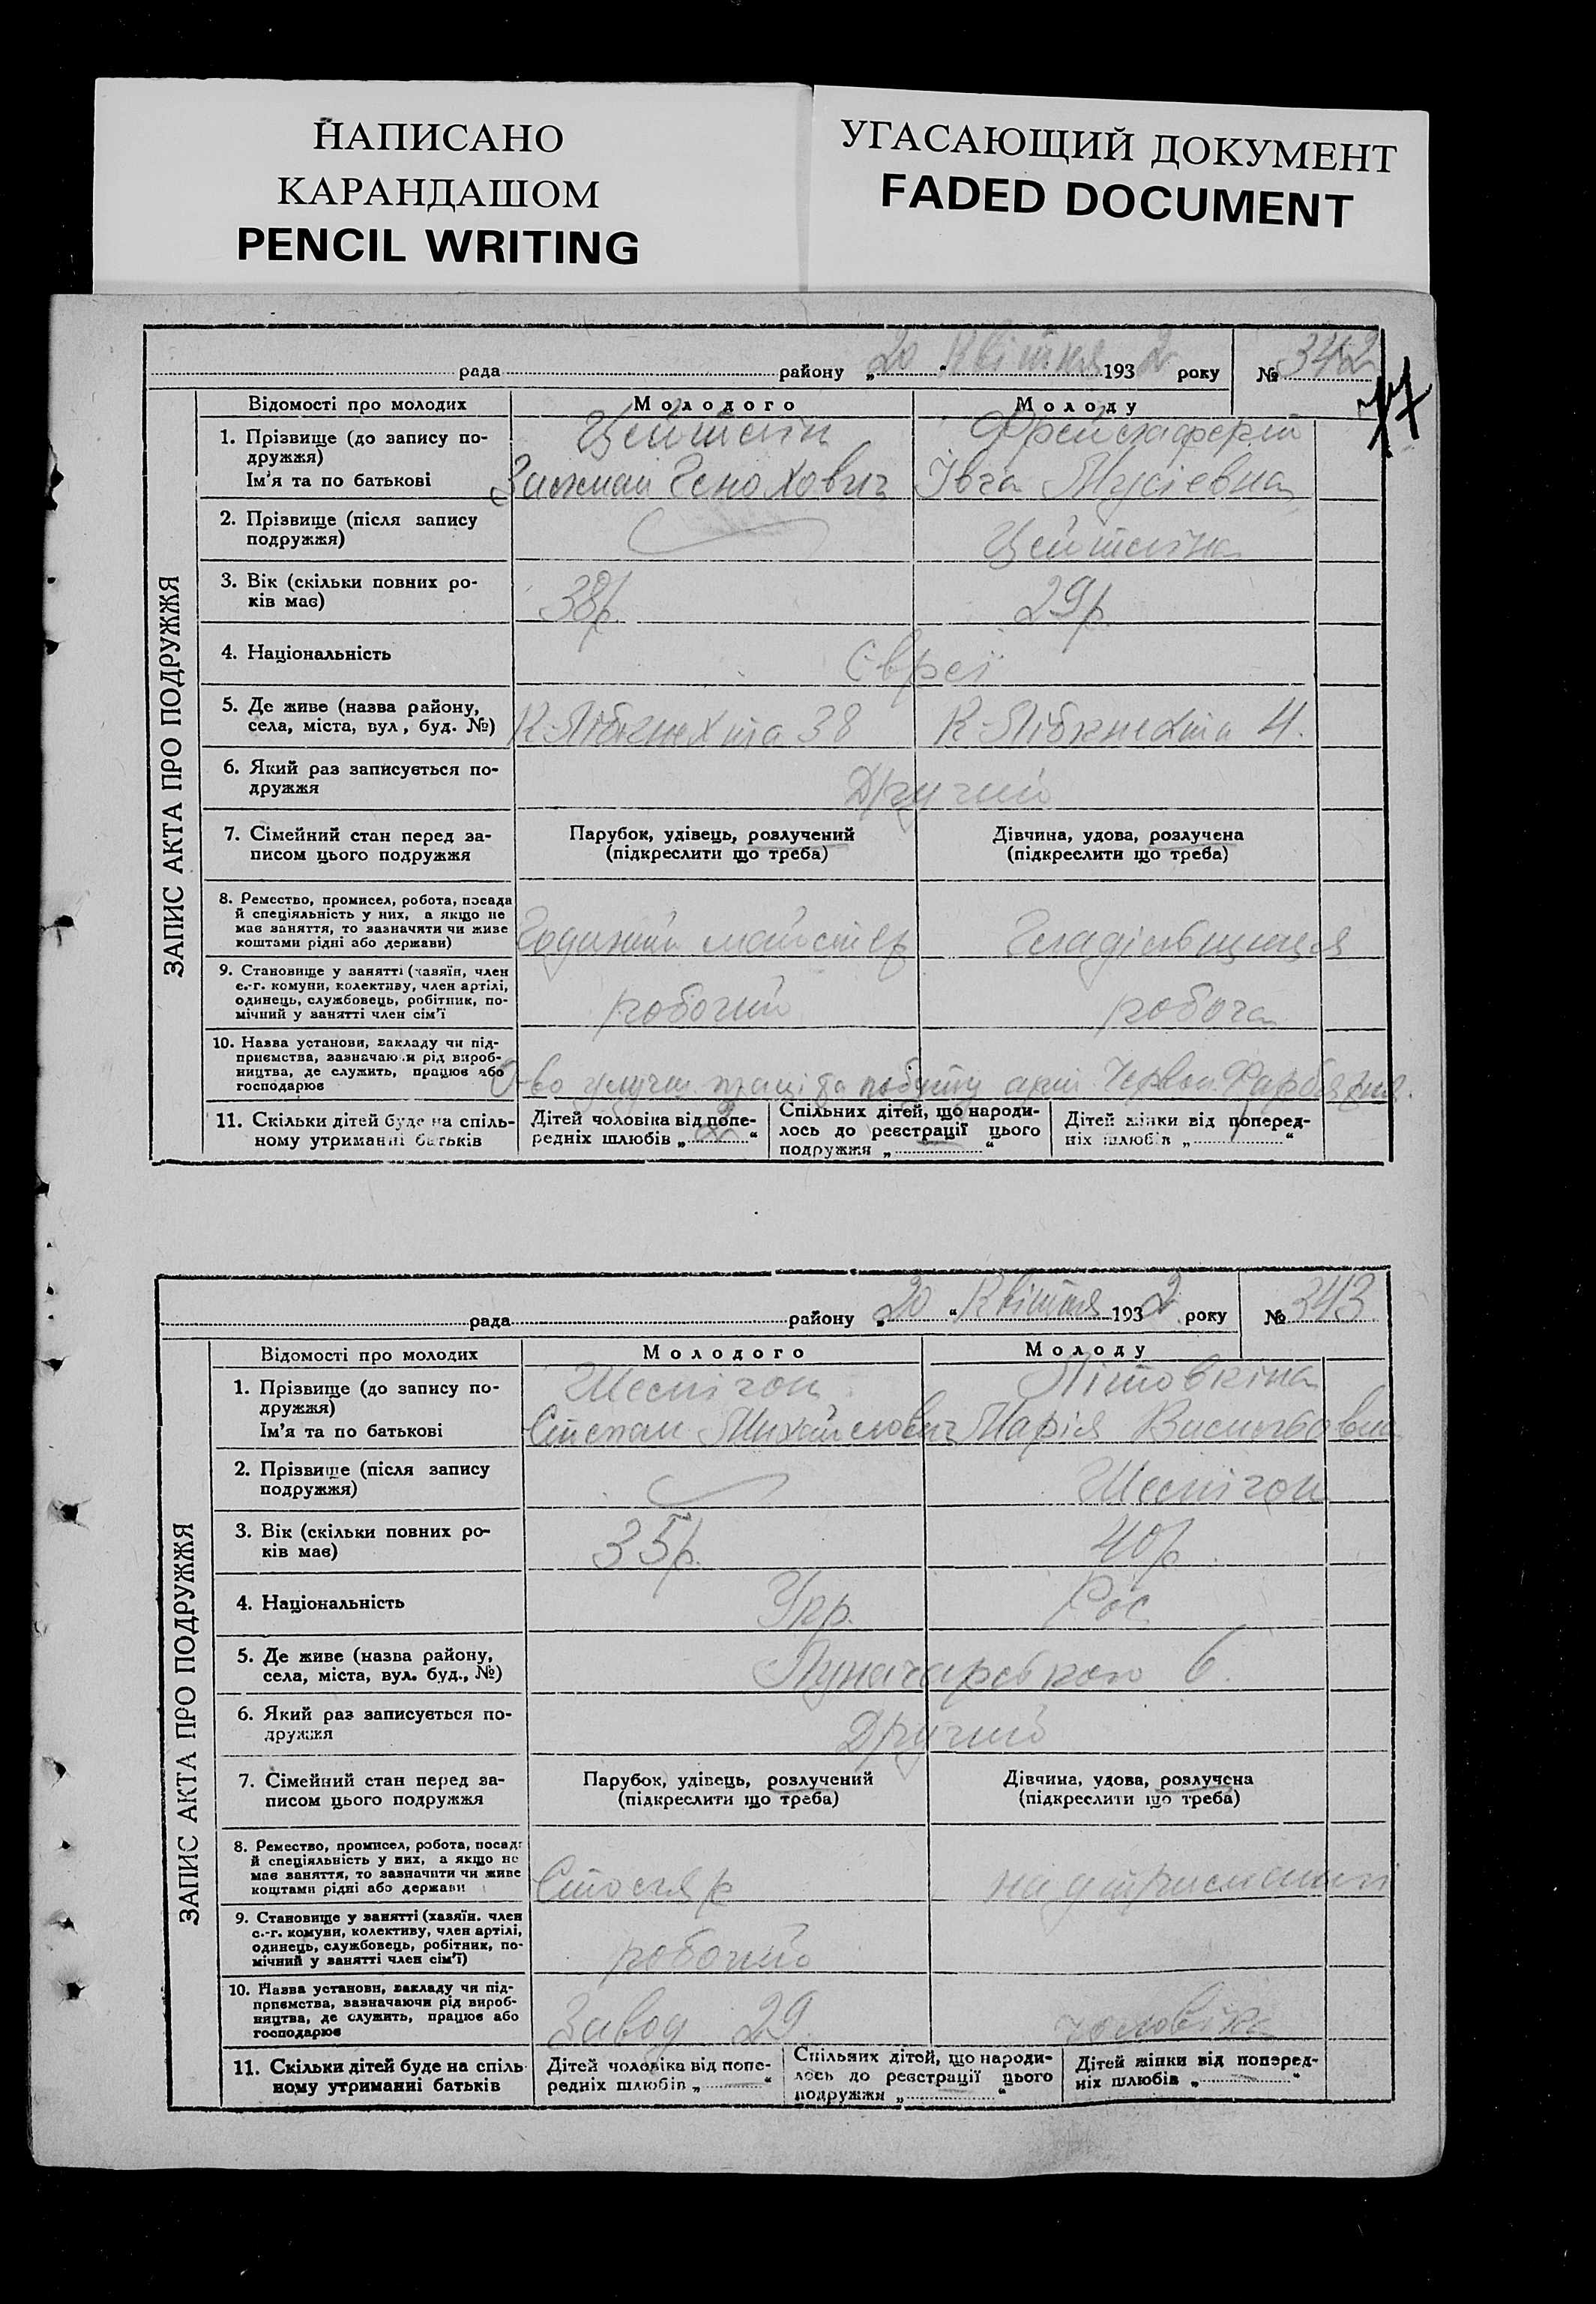 НАПИСАНО
КАРАНДАШОМ
PENCIL WRITING
УГАСАЮЩИЙ ДОКУМЕНТ
FADED DOCUMENT
рада району „20 " Квітня 1932 року № 342
77
ЗАПИС АКТА ПРО ПОДРУЖЖЯ
Відомості про молодих Молодого Молоду
1. Прізвище (до запису по-
дружжя)
Цейтлін
Ім'я та по батькові
Генохович Мусіевна
2. Прізвище (після запису
подружжя)
Цейтліна
3. Вік (скільки повних ро-
ків має)
38р. 29р.
4. Національність
Євреї
5. Де живе (назва району,
села, міста, вул, буд. №)
К-Лібкнехта 38 К-Лібкнехта 4.
6. Який раз записується по-
дружжя
Другий
7. Сімейний стан перед за-
писом цього подружжя
Парубок, удівець, розлучений
(підкреслити що треба)
Дівчина, удова, розлучена
(підкреслити що треба)
8. Ремество, промисел, робота, посада
й спеціяльність у них, а якщо не
має заняття, то зазначити чи живе
коштами рідні або держави)
9. Становище у занятті (хазяїн, член
с.-г. комуни, колективу, член артілі,
одинець, службовець, робітник, по-
мічний у занятті член сім'ї
робочий робоча
10. Назва установи, закладу чи під-
приємства, зазначаючи рід вироб-
ництва, де служить, працює або
господарює
О-во улучш. праці та побуту арт. Червон.
11. Скільки дітей буде на спіль-
ному утриманні батьків
Дітей чоловіка від попе-
редніх шлюбів „ 2 "
Спільних дітей, що народи-
лось до реєстрації цього
подружжя „ "
Дітей жінки від поперед-
ніх шлюбів „ "
рада району „20 " Квітня 1932 року № 343
ЗАПИС АКТА ПРО ПОДРУЖЖЯ
Відомості про молодих Молодого Молоду
1. Прізвище (до запису по-
дружжя)
Літовкіна
Ім'я та по батькові
Степан Михайлович Марія
2. Прізвище (після запису
подружжя)
3. Вік (скільки повних ро-
ків має)
35р. 40р.
4. Національність
Укр. Рос.
5. Де живе (назва району,
села, міста, вул. буд., №)
Луначарського 6.
6. Який раз записується по-
дружжя
Другий
7. Сімейний стан перед за-
писом цього подружжя
Парубок, удівець, розлучений
(підкреслити що треба)
Дівчина, удова, розлучена
(підкреслити що треба)
8. Ремество, промисел, робота, посада
й спеціяльність у них, а якщо не
має заняття, то зазначити чи живе
коштами рідні або держави
Столяр на утриманні
9. Становище у занятті (хазяїн. член
с.-г. комуни, колективу, член артілі,
одинець, службовець, робітник, по-
мічний у занятті член сім'ї)
робочий
10. Назва установи, закладу чи під-
приємства, зазначаючи рід вироб-
ництва, де служить, працює або
господарює
Завод 29. чоловіка
11. Скільки дітей буде на спіль
ному утриманні батьків
Дітей чоловіка від попе-
редніх шлюбів „ "
Спільних дітей, що народи-
лось до реєстрації цього
подружжя „ "
Дітей жінки від поперед-
ніх шлюбів „ "